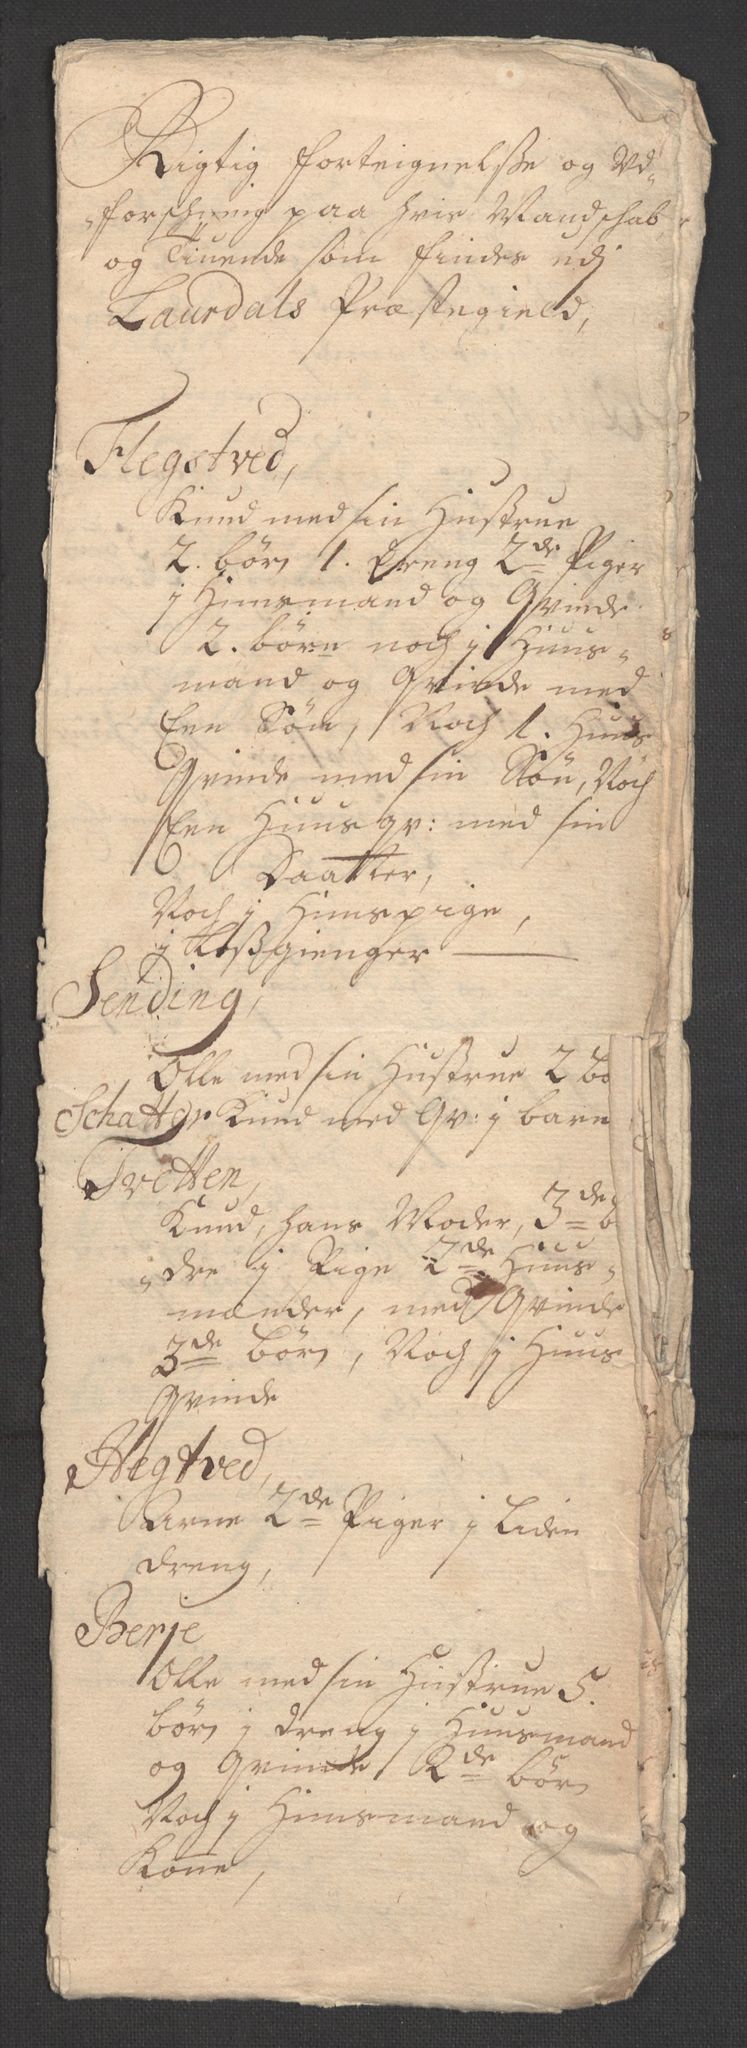 Rigtig forteignelsse og Ud-
forschning paa hvis Mandschab
og Tiuende som findes udj
Laurdals Præstegield,
Flegstved,
Knud med sin Hustrue
2. børn 1. dreng 2de Piger
j Huusmand og Qvinde
2. børn noch j Huus-
mand og Qvinde med
Een Søn, Noch 1. Huus
Qvinde med sin Søn, Noch
Een Huusqv: med sin
Daatter,
Noch j Huuspige,
j Kostgienger
Sending,
Olle med sin Hustrue 2 bø
Schatter Knud med Qv: j barn
Tvetten,
Knud, hans Moder, 3de b
dre j Pige 2de Huus-
mænder, med Qvinde
3de børn, Noch j Huus
Qvinde
Hegtved,
Arne 2de Piger j Liden
dreng,
Berje
Olle med sin Hustrue 5.
børn j dreng j Huusmand
og Qvinde 2de børn
Noch j Huusmand og
Kone,